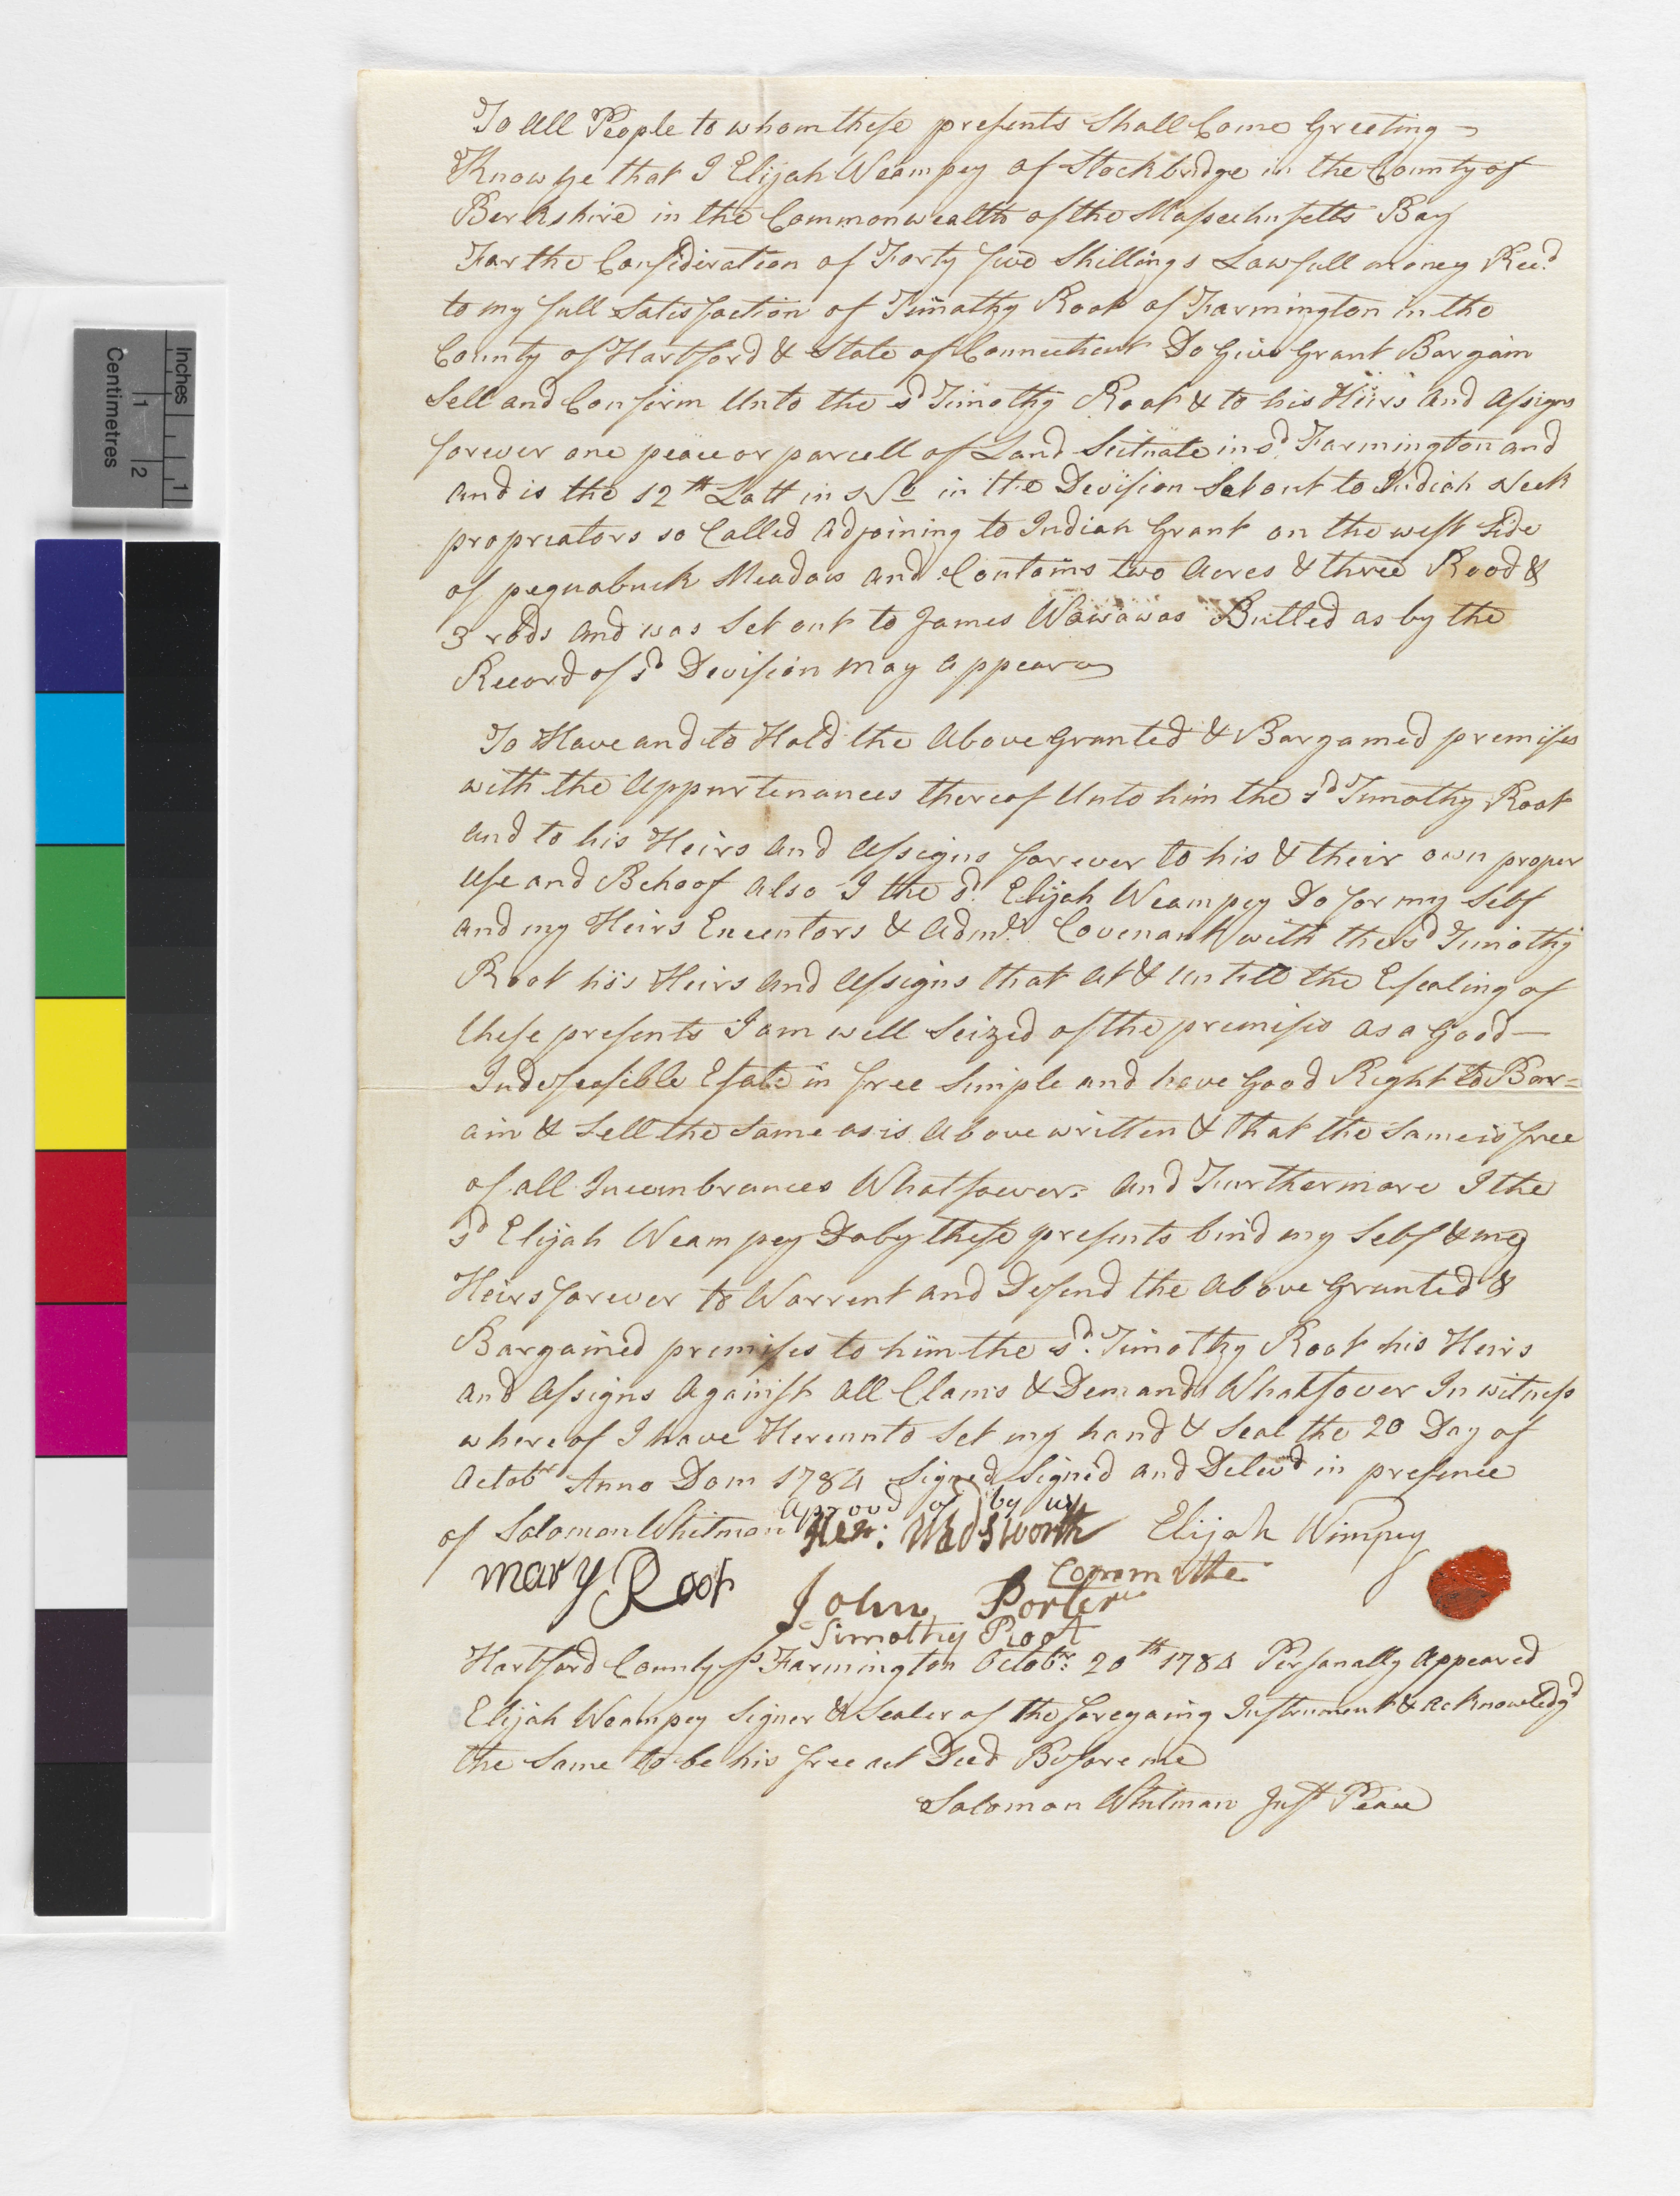 Inches
1
Centimetres
1
2
To All People to whom these presents Shall Come Greeting
Know ye that I Elijah Weampey of Stockbridge in the County of
Berkshire in the Commonwealth of the Massechusetts Bay
For the Consideration of Forty five Shillings Lawfull money Recd
to my full Satisfaction of Timothy Root of Farmington in the
County of Hartford & State of Connecticut Do Give Grant Bargain
Sell and Confirm Unto the sd Timothy Root & to his Heirs And Assigns
forever one peace or parcell of Land Scituate in sd Farmington and
and is the 12th Lott in No in the Devision Set out to Indian Neck
propriators so Called Adjoining to Indian Grant on the west Side
of pequabuck Meadow and Contains two Acres & three Rood &
3 rods and was Set out to James Wawawas Butled as by the
Record of sd Devision may appear
To Have and to Hold the Above Granted & Bargained premises
with the Appurtenances thereof Unto him the sd Timothy Root
and to his Heirs And Assigns forever to his & their own proper
Use and Behoof Also I the sd Elijah Weampey Do for my Self
and my Heirs Executors & Admrs Covenant with the sd Timothy
Root his Heirs and Assigns that At & Untill the Ensealing of
these presents I am well Seized of the premises as a Good
Indefeasible Estate in free Simple and have Good Right to Bar=
ain & Sell the Same as is Above written & that the Same is free
of all Incumbrances Whatsoever And Furthermore I the
sd Elijah Weampey Do by these presents bind my Self & my
Heirs forever to Warrent and Defend the Above Granted &
Bargained premises to him the sd Timothy Root his Heirs
and Assigns Against All Claims & Demands Whatsover In witness
whereof I have Hereunto Set my hand & Seal the 20 Day of
Octobr Anno Dom 1784 Signed Signed and Delivd in presence
of Solomon Whitman Aproovd of by us Elijah Wimpey
Hez: Wadsworth
Mary Root
Committe
John Porter
Timothy Root
Hartford County ss Farmington Octobr 20th 1784 Personally Appeared
Elijah Weampey Signer & Sealer of the foregoing Instrument & acknowledgd
the Same to be his free act Deed Before me
Solomon Whitman Just Peace